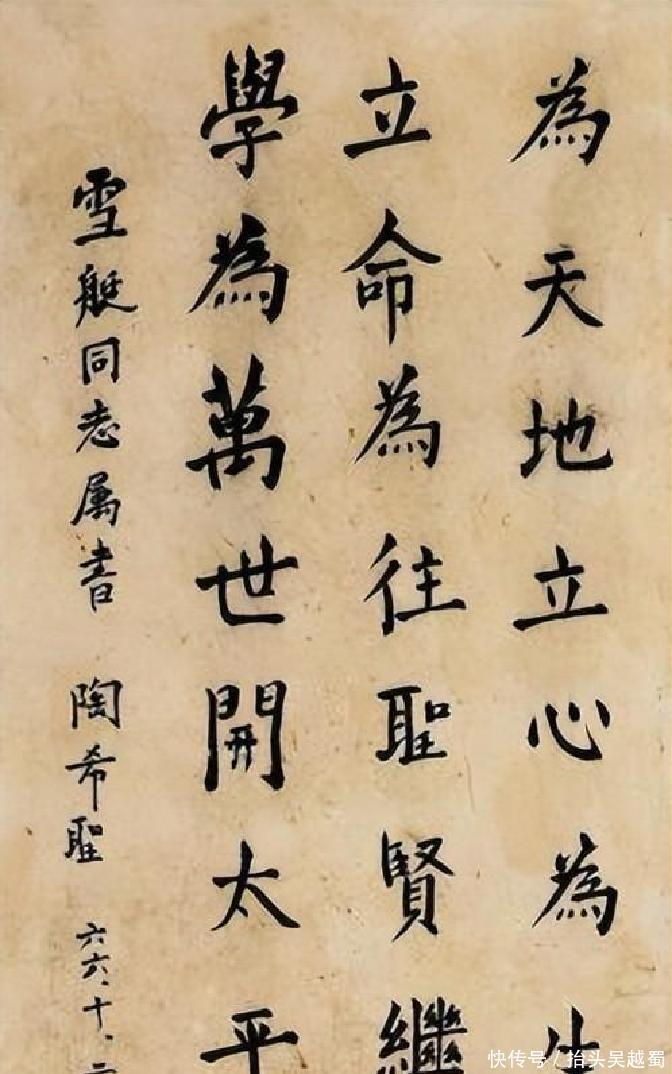 為天地立心為生
立命為往聖賢繼
學為萬世開太平
雪艇同志属書 陶希聖 六六、十、二
快传号/抬头吴越蜀